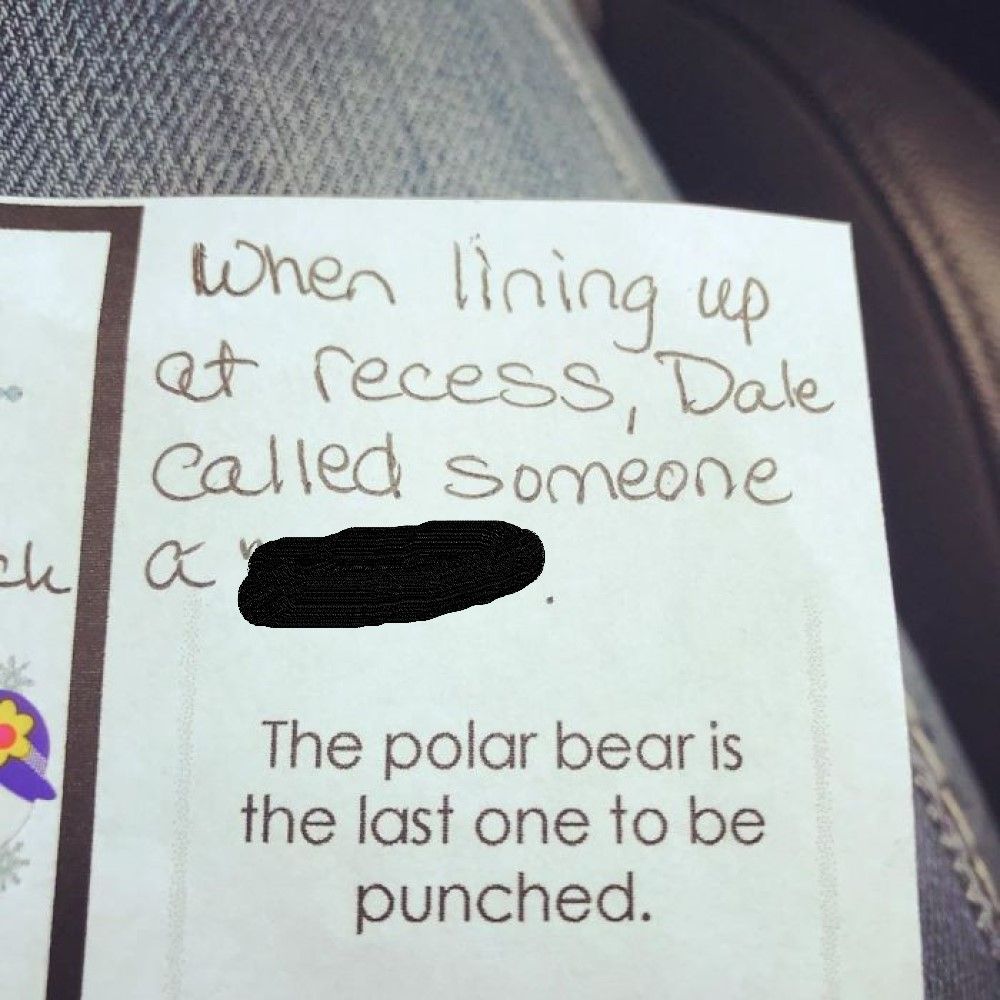 When lining up
at recess, Dale
called someone
a "
.
ck
The polar bear is
the last one to be
punched.